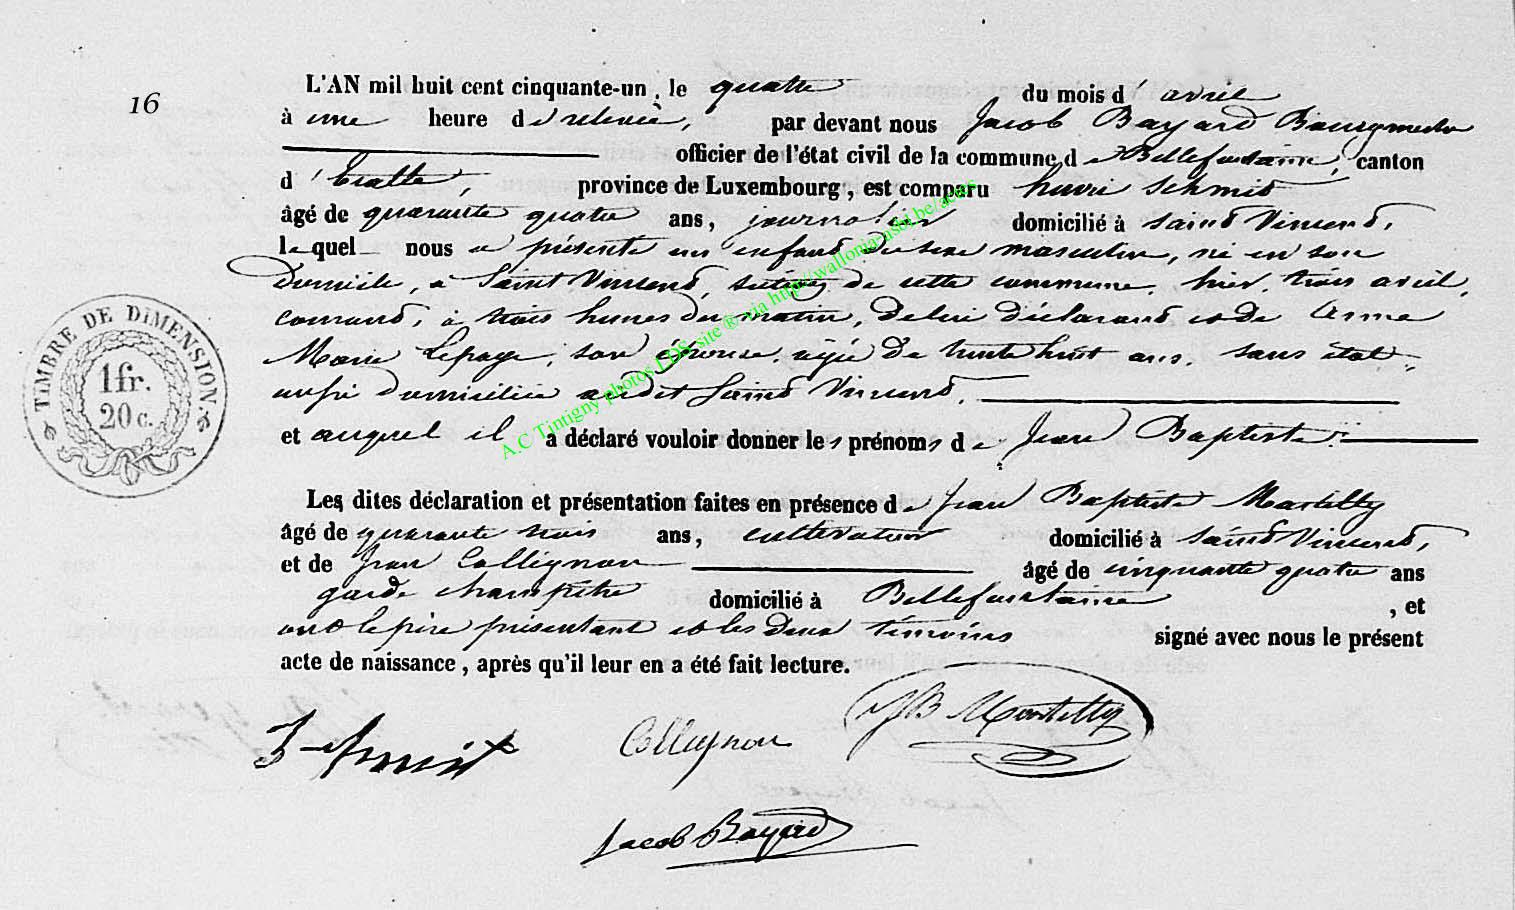 16
L'AN mil huit cent cinquante-un, le quatre du mois d'avril
à une heure de relevée, par devant nous Jacob Bayard Bourgmestre
officier de l'état civil de la commune de Bellefontaine, canton
d'Etalle, province de Luxembourg, est comparu henri Schmid
âgé de quarante quatre ans, journalier domicilié à Saind Vincend,
lequel nous a présenté un enfand du sexe masculin, né en son
Domicile, à Saint Vincend, section de cette commune, hier, trois avril,
courand, à trois heures du matin, de lui déclarand et de Anne
Marie Lepage, son épouse, agée de trente huit ans, sans état,
aussi domiciliée audit Saind Vincend,
et auquel il a déclaré vouloir donner les prénoms de Jean Baptiste.
Les dites déclaration et présentation faites en présence de Jean Baptiste Martilly
âgé de quarante trois ans, cultivateur domicilié à Saind Vincend,
et de Jean Collignon âgé de cinquante quatre ans
garde champêtre domicilié à Bellefontaine, et
ont le père présentant et les deux témoins signé avec nous le présent
acte de naissance, après qu'il leur en a été fait lecture.
Collignon JB Martilly
Jacob Bayard
TIMBRE DE DIMENSION.
1 fr.
20 c.
A.C Tintigny photos LDS, site ® via http://wallonia-asbl.be/actes